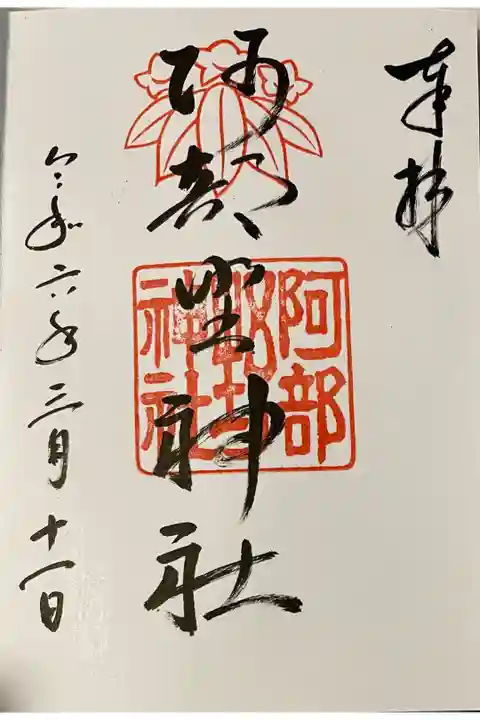 奉拝
阿部埜神社
令和六年三月十一日
阿部
埜
神社